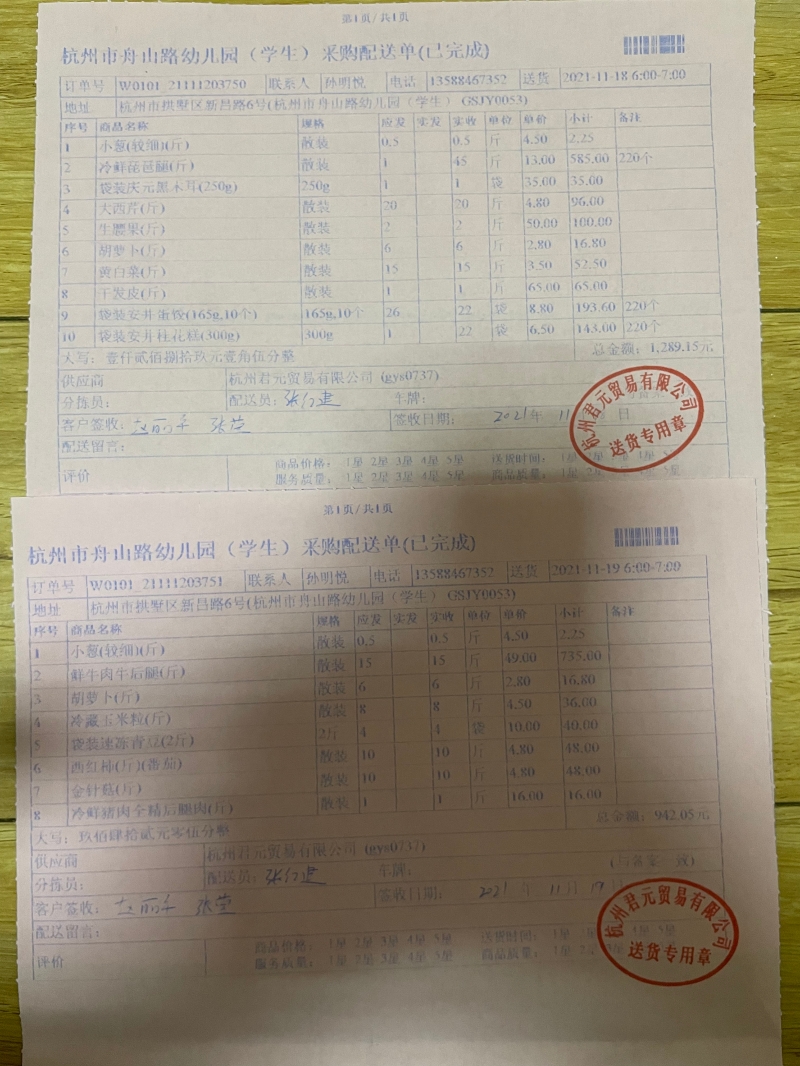 第1页/共1页
杭州市舟山路幼儿园（学生）采购配送单(已完成)
订单号 W0101_21111203750 联系人 孙明悦 电话 13588467352 送货 2021-11-18 6:00-7:00
地址 杭州市拱墅区新昌路6号(杭州市舟山路幼儿园（学生） GSJY0053)
序号 商品名称 规格 应发 实发 实收 单位 单价 小计 备注
1 小葱(较细)(斤) 散装 0.5 0.5 斤 4.50 2.25
2 冷鲜琵琶腿(斤) 散装 1 45 斤 13.00 585.00 220个
3 袋装庆元黑木耳(250g) 250g 1 1 袋 35.00 35.00
4 大西芹(斤) 散装 20 20 斤 4.80 96.00
5 生腰果(斤) 散装 2 2 斤 50.00 100.00
6 胡萝卜(斤) 散装 6 6 斤 2.80 16.80
7 黄白菜(斤) 散装 15 15 斤 3.50 52.50
8 干发皮(斤) 散装 1 1 斤 65.00 65.00
9 袋装安井蛋饺(165g,10个) 165g,10个 26 22 袋 8.80 193.60 220个
10 袋装安井桂花糕(300g) 300g 1 22 袋 6.50 143.00 220个
大写：壹仟贰佰捌拾玖元壹角伍分整 总金额：1,289.15元
供应商 杭州君元贸易有限公司 (gys0737)
分拣员： 配送员：张红建 车牌：
客户签收： 签收日期： 2021年 11 日
配送留言：
评价 商品价格： 1星 2星 3星 4星 5星 送货时间：
服务质量： 1星 2星 3星 4星 5星 商品质量：
杭州君元贸易有限公司
送货专用章
第1页/共1页
杭州市舟山路幼儿园（学生）采购配送单(已完成)
订单号 W0101_21111203751 联系人 孙明悦 电话 13588467352 送货 2021-11-19 6:00-7:00
地址 杭州市拱墅区新昌路6号(杭州市舟山路幼儿园（学生） GSJY0053)
序号 商品名称 规格 应发 实发 实收 单位 单价 小计 备注
1 小葱(较细)(斤) 散装 0.5 0.5 斤 4.50 2.25
2 鲜牛肉牛后腿(斤) 散装 15 15 斤 49.00 735.00
3 胡萝卜(斤) 散装 6 6 斤 2.80 16.80
4 冷藏玉米粒(斤) 散装 8 8 斤 4.50 36.00
5 袋装速冻青豆(2斤) 2斤 4 4 袋 10.00 40.00
6 西红柿(斤)(番茄) 散装 10 10 斤 4.80 48.00
7 金针菇(斤) 散装 10 10 斤 4.80 48.00
8 冷鲜猪肉全精后腿肉(斤) 散装 1 1 斤 16.00 16.00
大写：玖佰肆拾贰元零伍分整 总金额：942.05元
供应商 杭州君元贸易有限公司 (gys0737)
分拣员： 配送员：张红建 车牌：
客户签收： 签收日期： 2021年 11月 19
配送留言：
评价 商品价格： 1星 2星 3星 4星 5星 送货时间：
服务质量： 1星 2星 3星 4星 5星 商品质量：
杭州君元贸易有限公司
送货专用章